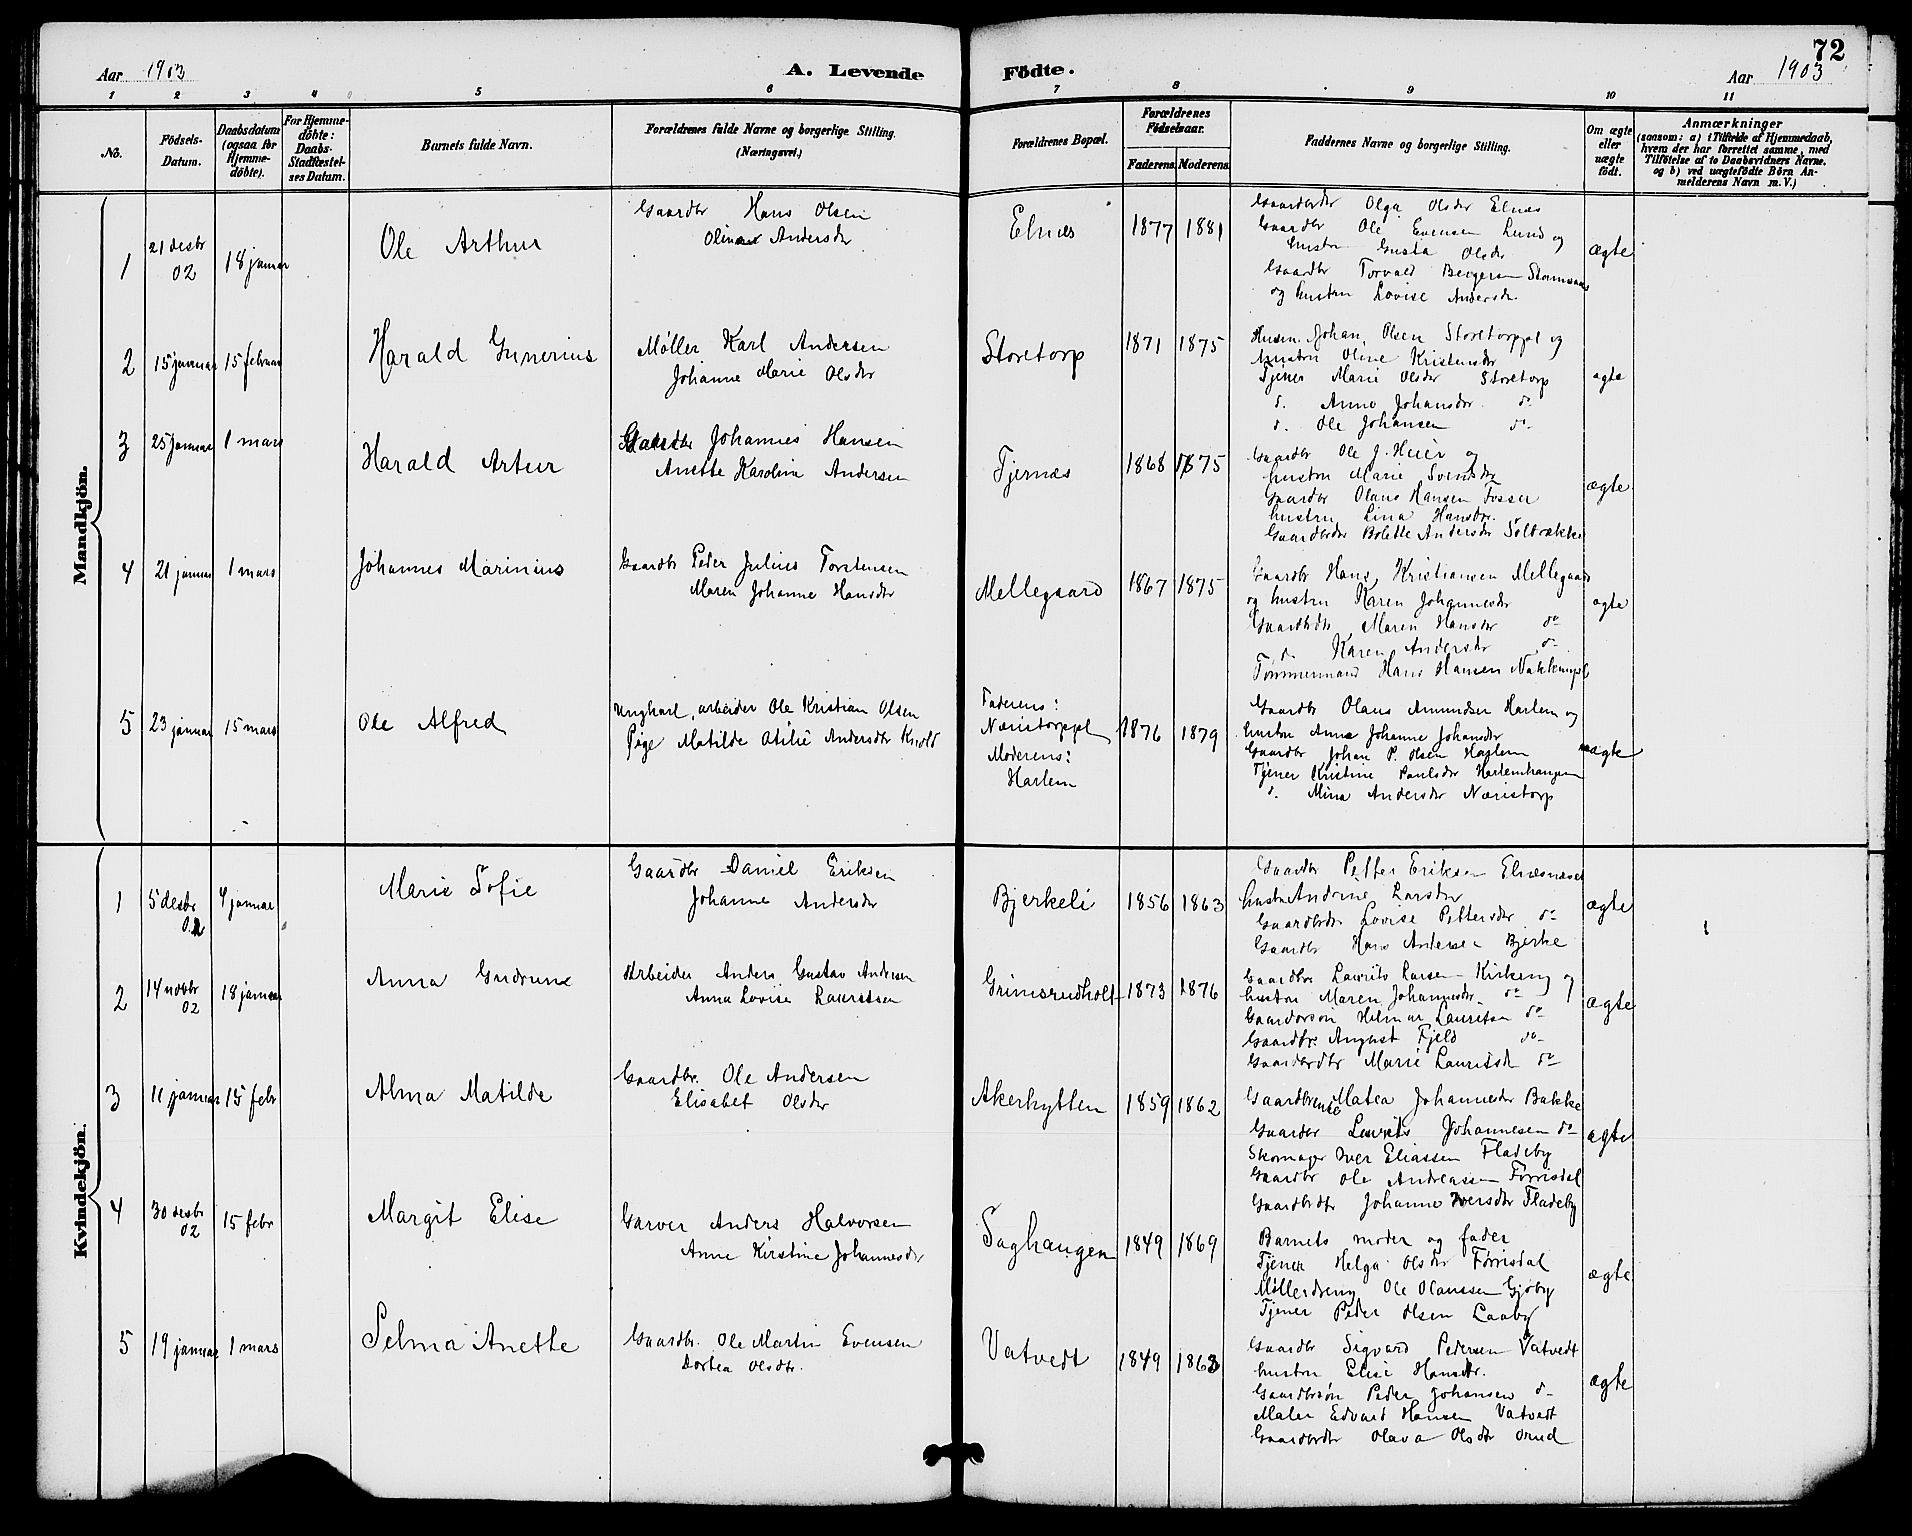 72
Aar 1903
A. Levende Födte.
Aar 1903
1 2 3 4 5 6 7 8 9 10 11
No.
Födsels-Datum.
Daabsdatum (ogsaa for Hjemmedöbte).
For Hjemmedöbte: Daabs-Stadfæstelses Datum.
Barnets fulde Navn.
Forældrenes fulde Navne og borgerlige Stilling. (Næringsvei.)
Forældrenes Bopæl.
Forældrenes Födselsaar.
Faderens. Moderens.
Faddernes Navne og borgerlige Stilling.
Om ægte eller uægte födt.
Anmærkninger
(saasom: a) i Tilfælde af Hjemmedaab, hvem der har forrettet samme, med Tilföielse af to Daabsvidners Navne. og b) ved uægtefödte Börn Anmelderens Navn m. V.)
Mandkjön.
1
21 desbr 02
18 januar
Ole Arthur
Gaardbr Hans Olsen
Olinae Andersdr
Elnes
1877 1881
Gaardbdr Olga Olsdr Elnæs
Gaardbr Ole Evensen Lund og
hustru Gusta Olsdr
Gaardbr Torvald Bergersen
og hustru Lovise Andersdr
ægte
2
15 januar
15 februar
Harald Gunerius
Møller Karl Andersen
Johanne Marie Olsdr
Storetorp
1871 1875
Husm. Johan Olsen Storetorppl og
hustru Oline Kristensdr
Tjener Marie Olsdr Storetorp
d. Anna Johansdr do
d. Ole Johansen do
ægte
3
25 januar
1 mars
Harald Artur
Gaardbr Johannes Hansen
Anette Karoline Andersen
Tjernæs
1868 1875
Gaardbr Ole J. Heier og
hustru Marie Svendsdr
Gaardbr Olaus Hansen Fosser
hustru Lina Hansdr.
Gaardbrdr Bolette Andersdr Solbrække
ægte
4
21 januar
1 mars
Johannes Marinius
Gaardbr Peder Julius Torstensen
Maren Johanne Hansdr
Mellegaard
1867 1875
Gaardbr Hans Kristiansen Mellegaard
og hustru Karen Johannesdr
Gaardbdr Maren Hansdr do
d. Karen Andersdr do
Tømmermand Hans Hansen
ægte
5
23 januar
15 mars
Ole Alfred
Ungkarl, arbeider Ole Kristian Olsen
Pige Matilde Otilie Andersdr
Faderens:
Næristorppl
Moderens:
Harlem
1876 1879
Gaardbr Olaus Amundsen Harlem og
hustru Anna Johanne Johansdr
Gaardbr Johan P. Olsen Harlem
Tjener Kristine Paulsdr Harlemhaugen
d. Mina Andersdr Næristorp
uægte
Kvindekjön.
1
5 desbr 02
4 januar
Marie Sofie
Gaardbr Daniel Eriksen
Johanne Andersdr
Bjerkeli
1856 1863
Gaardbr Petter Eriksen Elnæsnæset
hustr Andrine Larsdr
Gaardbrdr Lovise Pettersdr do
Gaardbr Hans Andersen Bjerke
ægte
2
14 novbr 02
18 januar
Anna Gudrune
Arbeider Anders Gustav Andersen
Anna Lovise Lauritsen
Grimsrudholt
1873 1876
Gaardbr Laurits Larsen Kirkeng og
hustru Maren Johannesdr do
Gaardbrsøn Helmar Lauritsen do
Gaardbr August Fjeld do
Gaardbrdtr Marie Lauritsdr do
ægte
3
11 januar
15 febr
Alma Matilde
Gaardbr. Ole Andersen
Elisabet Olsdr
Akerhytten
1859 1862
Gaardbrenke Matea Johannesdr Bakke
Gaardbr Laurits Johannesen do
Skomager Iver Eliassen Fladeby
Gaardbr Ole Andreassen Førrisdal
Gaardbrdtr Johanne Iversdtr Fladeby
ægte
4
30 desbr 02
15 febr
Margit Elise
Garver Anders Halvorsen
Anne Kirstine Johannesdr
Saghaugen
1849 1869
Barnets moder og fader
Tjener Helga Olsdr Førrisdal
Møllerdreng Ole Olaussen Gjøby
Tjener Peder Olsen Laaby
ægte
5
19 januar
1 mars
Selma Anette
Gaardbr. Ole Martin Evensen
Dortea Olsdtr.
Vatvedt
1849 1863
Gaardbr Sigvard Pedersen Vatvedt
hustru Elise Hansdtr.
Gaardbrsøn Peder Johansen do
Maler Edvard Hansen Vatvedt
Gaardbrdtr Olava Olsdtr Orud
ægte